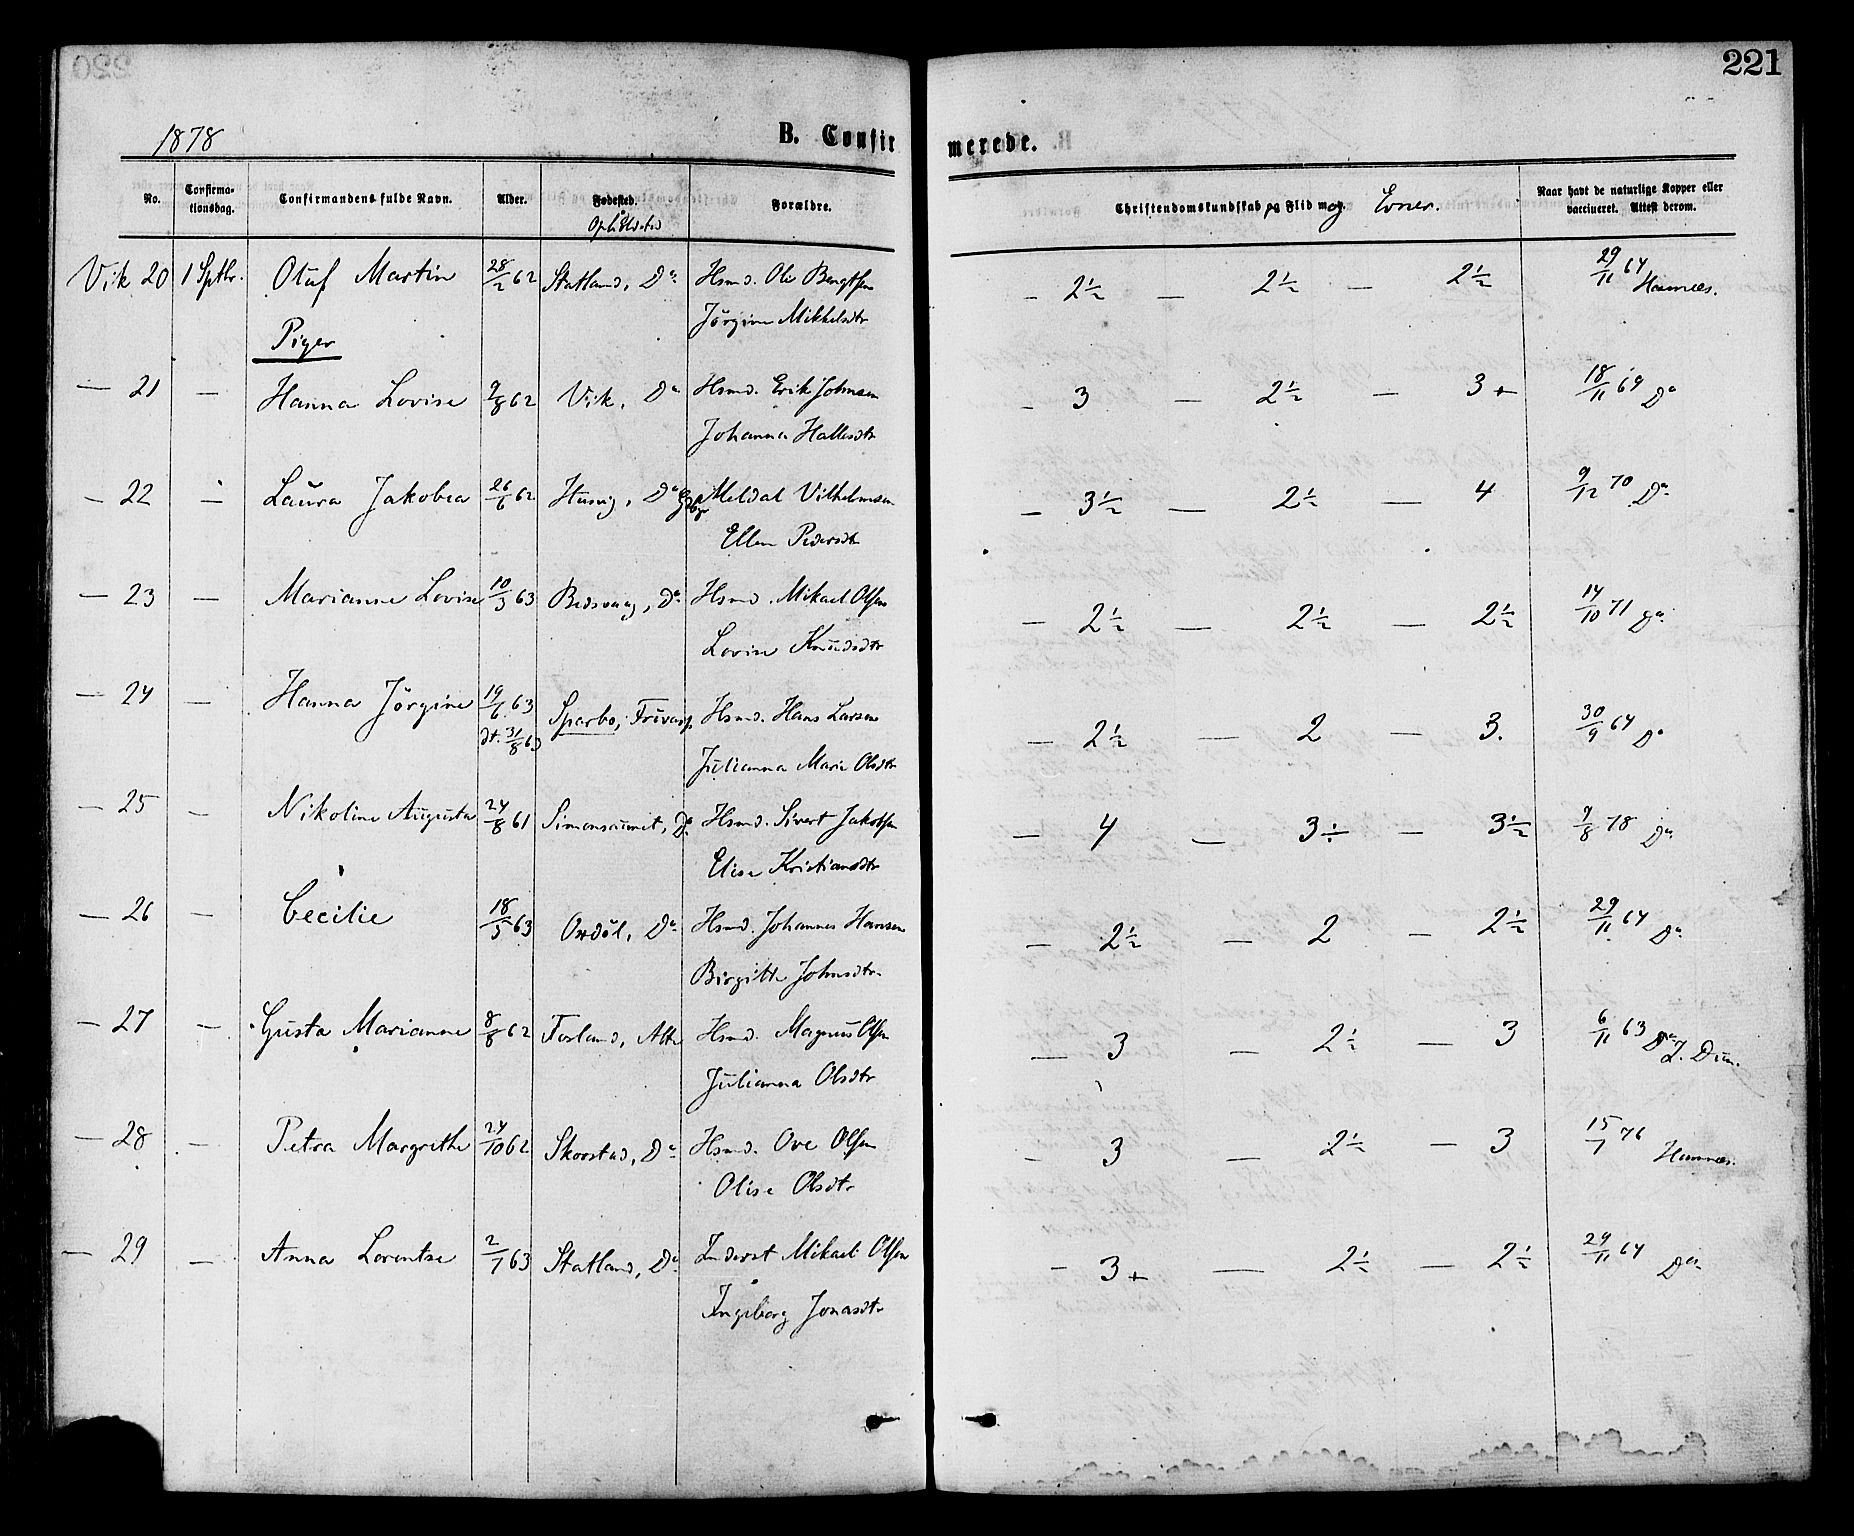 221
1878
B. Confirmerede.
No.
Confirma-
tionsdag.
Confirmandens fulde Navn.
Alder.
Fødested.
Forældre.
Christendomskundskab og Flid og Evner.
Naar havt de naturlige Kopper eller
vaccineret. Attest derom.
Vik 20 1 Sptbr. Oluf Martin 28/2 62 Statland, Do Hsmd. Ole Bengtsen — 2½ — 2½ — 2½ 29/11 64
Jörgine Mikkelsdtr
Piger
— 21 — Hanna Lovise 9/8 62 Vik, Do Hsmd. Erik Johnsen — 3 — 2½ — 3+ 18/11 69 Do
Johanna Hallesdtr
— 22 — Laura Jakobea 26/6 62 Husvig, Do Meldal Vilhelmsen — 3½ — 2½ — 4 9/12 70 Do
Ellen Pedersdtr
— 23 — Marianne Lovise 10/3 63 Bedsvaag, Do Hsmd. Mikael Olsen — 2½ — 2½ — 2½ 14/10 71 Do
Lovise Knudsdtr
— 24 — Hanna Jörgine 19/6 63 Sparbo, Hsmd. Hans Larsen — 2½ — 2 — 3. 30/9 64 Do
dt. 31/8 63
Julianna Marie Olsdtr
— 25 — Nikoline Augusta 24/8 61 Hsmd. Sivert Jakobsen — 4 — 3÷ — 3½ 7/8 78 Do
Elise Kristiansdtr
— 26 — Cecilie 18/5 63 Do Hsmd. Johannes Hansen — 2½ — 2 — 2½ 29/11 64 Do
Birgitte Johnsdtr
— 27 — Gusta Marianne 8/8 62 Fosland, Hsmd. Magnus Olsen — 3 — 2½ — 3 6/11 63 Do
Julianna Olsdtr
— 28 — Petra Margrethe 24/10 62 Skorstad, Do Hsmd. Ove Olsen — 3 — 2½ — 3 15/7 76
Olise Olsdtr
— 29 — Anna Lorentse 2/1 63 Statland, Do Inderst Mikael Olsen — 3+ — 2½ — 2½ 29/11 64 Do
Ingeborg Jonasdtr